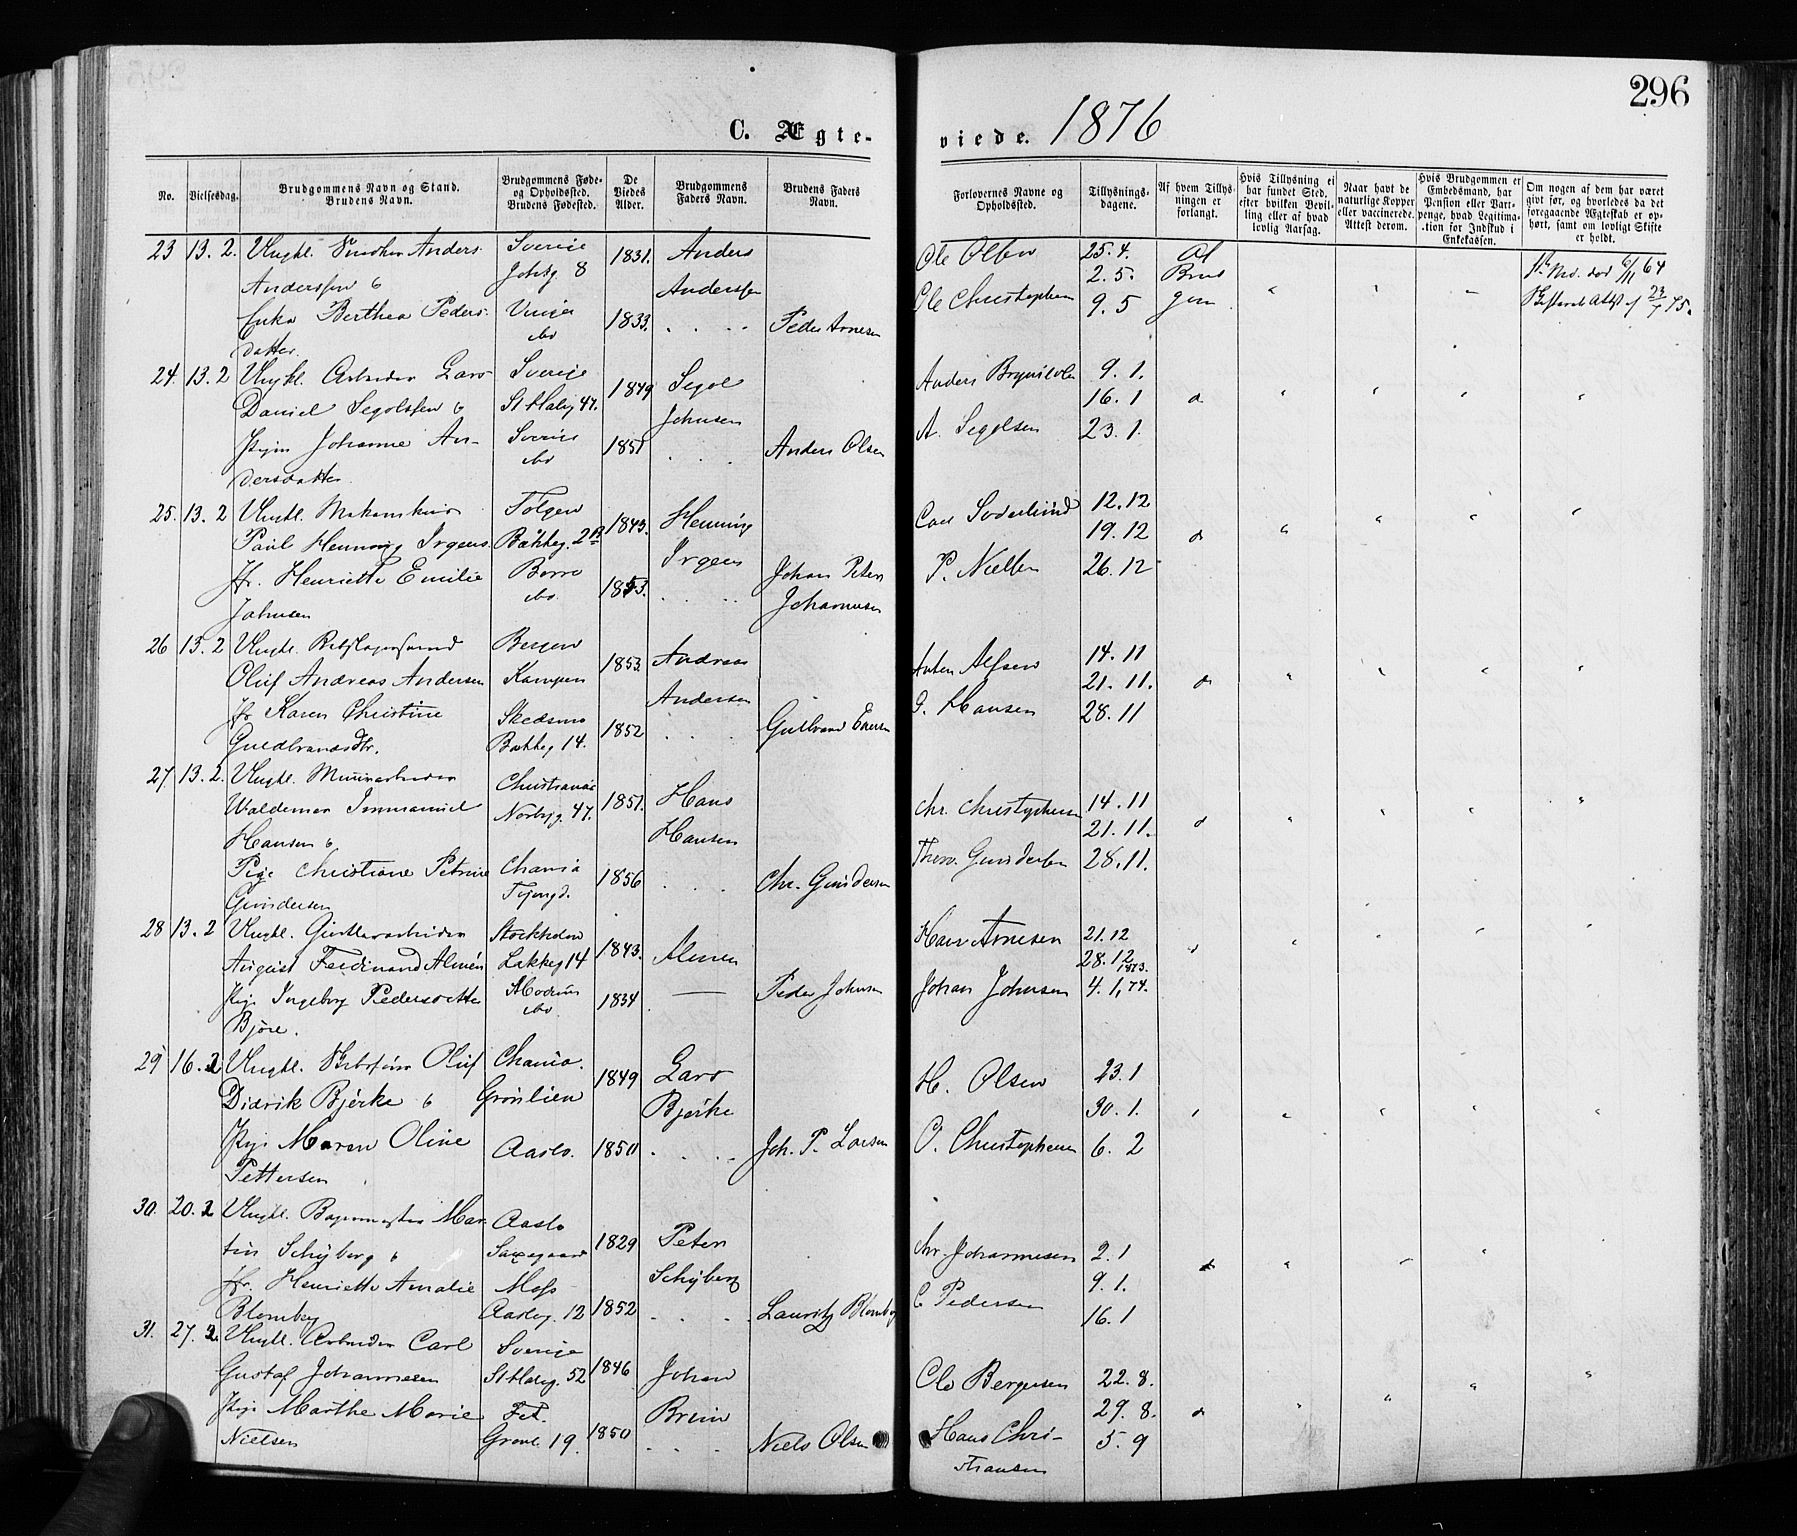 296
C. Ægte-
viede. 1876
No.
Vielsesdag.
Brudgommens Navn og Stand.
Brudens Navn.
Brudgommens Føde-
og Opholdssted.
Brudens Fødested.
De
Viedes
Alder.
Brudgommens
Faders Navn.
Brudens Faders
Navn.
Forlovernes Navne og
Opholdssted.
Tillysnings-
dagene.
Af hvem Tillys-
ningen er
forlangt.
Hvis Tillysning ei
har fundet Sted,
efter hvilken Bevil-
ling eller af hvad
lovlig Aarsag.
Naar havt de
naturlige Kopper
eller vaccinerede.
Attest derom.
Hvis Brudgommen er
Embedsmand, har
Pension eller Vart-
penge, hvad Legitima-
tion for Indskud i
Enkekassen.
Om nogen af dem har været
givt før, og hvorledes da det
foregaaende Ægteskab er op-
hørt, samt om lovligt Skifte
er holdt.
23 13. 2. Ungkl. Anders Sverige 1831. Anders Ole Olsen 25.4. Af
Anderssen & 8 Anderssen 2.5. Brud
Enke Berthea Peders- Vinger 1833. Peder Arnesen Ole Christophersen 9.5 gom
datter do
24. 13. 2 Ungkl. Arbeider Lars Sverige 1849 Segol Anders 9.1.
Daniel Segolssen & St Halvg 47. Johnsen 16.1 do
Pigen Johanne An- Sverige 1851 Anders Olsen A. Segolsen 23.1.
dersdatter do
25. 13. 2 Ungkl. 1843. Henning Carl Soderlund 12.12
Paul Henning Irgens Bakkeg. 2 B Irgens 19.12 do
Jfr. Henriette Emilie Borre 1853. Johan Peter P. Nielsen 26.12
Johnsen do Johannesen
26 13. 2 Ungkl. Rebslagersvend Bergen 1853. Andreas Anton Alfsen 14.11
Oluf Andreas Andersen Kampen Andersen 21.11. do
Jfr Karen Christine Skedsmo 1852 Gulbrand G. Hansen 28.11
Guldbrandsdtr. Bakkeg 14.
27. 13. 2. Ungkl. Murarbeider Christiania 1851. Hans Chr. Christophersen 14.11
Waldemar Immanuel Norbyg. 47. Hansen 21.11. do
Hansen &
Pige Christiane Petrine Chania 1856 Chr. Gundersen Thorv. Gundersen 28.11.
Gundersen
28 13. 2 Ungkl. Gjørtlerarbeider Stockholm 1843. Almen Hans Arnesen 21.12
August Ferdinand Almén Lakkeg 14 28.12 1873. do
Pige Ingeborg Pedersdatter Modum 1834 — Peder Johnsen Johan Johnsen 4.1, 74.
Bjøre. do
29 16. 2 Ungkl. Oluf Chania. 1849 Lars H. Olsen 23.1
Didrik Bjerke & Grønlien Bjerke 30.1.
Pige Maren Oline Aaslo. 1850 Joh. P. Larsen O. Christophersen 6.2
Pettersen
30. 20. 2 Ungkl. Bagermester Mar- Aaslo 1829 Peter Chr. Johannesen 2.1
tin Schyberg & Saxegaard Schyberg 9.1. do
Jfr. Henriette Amalie Moss 1852 Lauritz Blomberg C Pedersen 16.1
Blomberg Aaslog. 12
31. 27. 2. Ungkl. Arbeider Carl Sverige 1846 Johan Ole Bergersen 22.8.
Gustaf Johannesen St Halvg. 52 29.8. do
Pige Marthe Marie Fet. 1850 Niels Olsen Hans Chri- 5.9
Nielsen Grønl. 19. stiansen